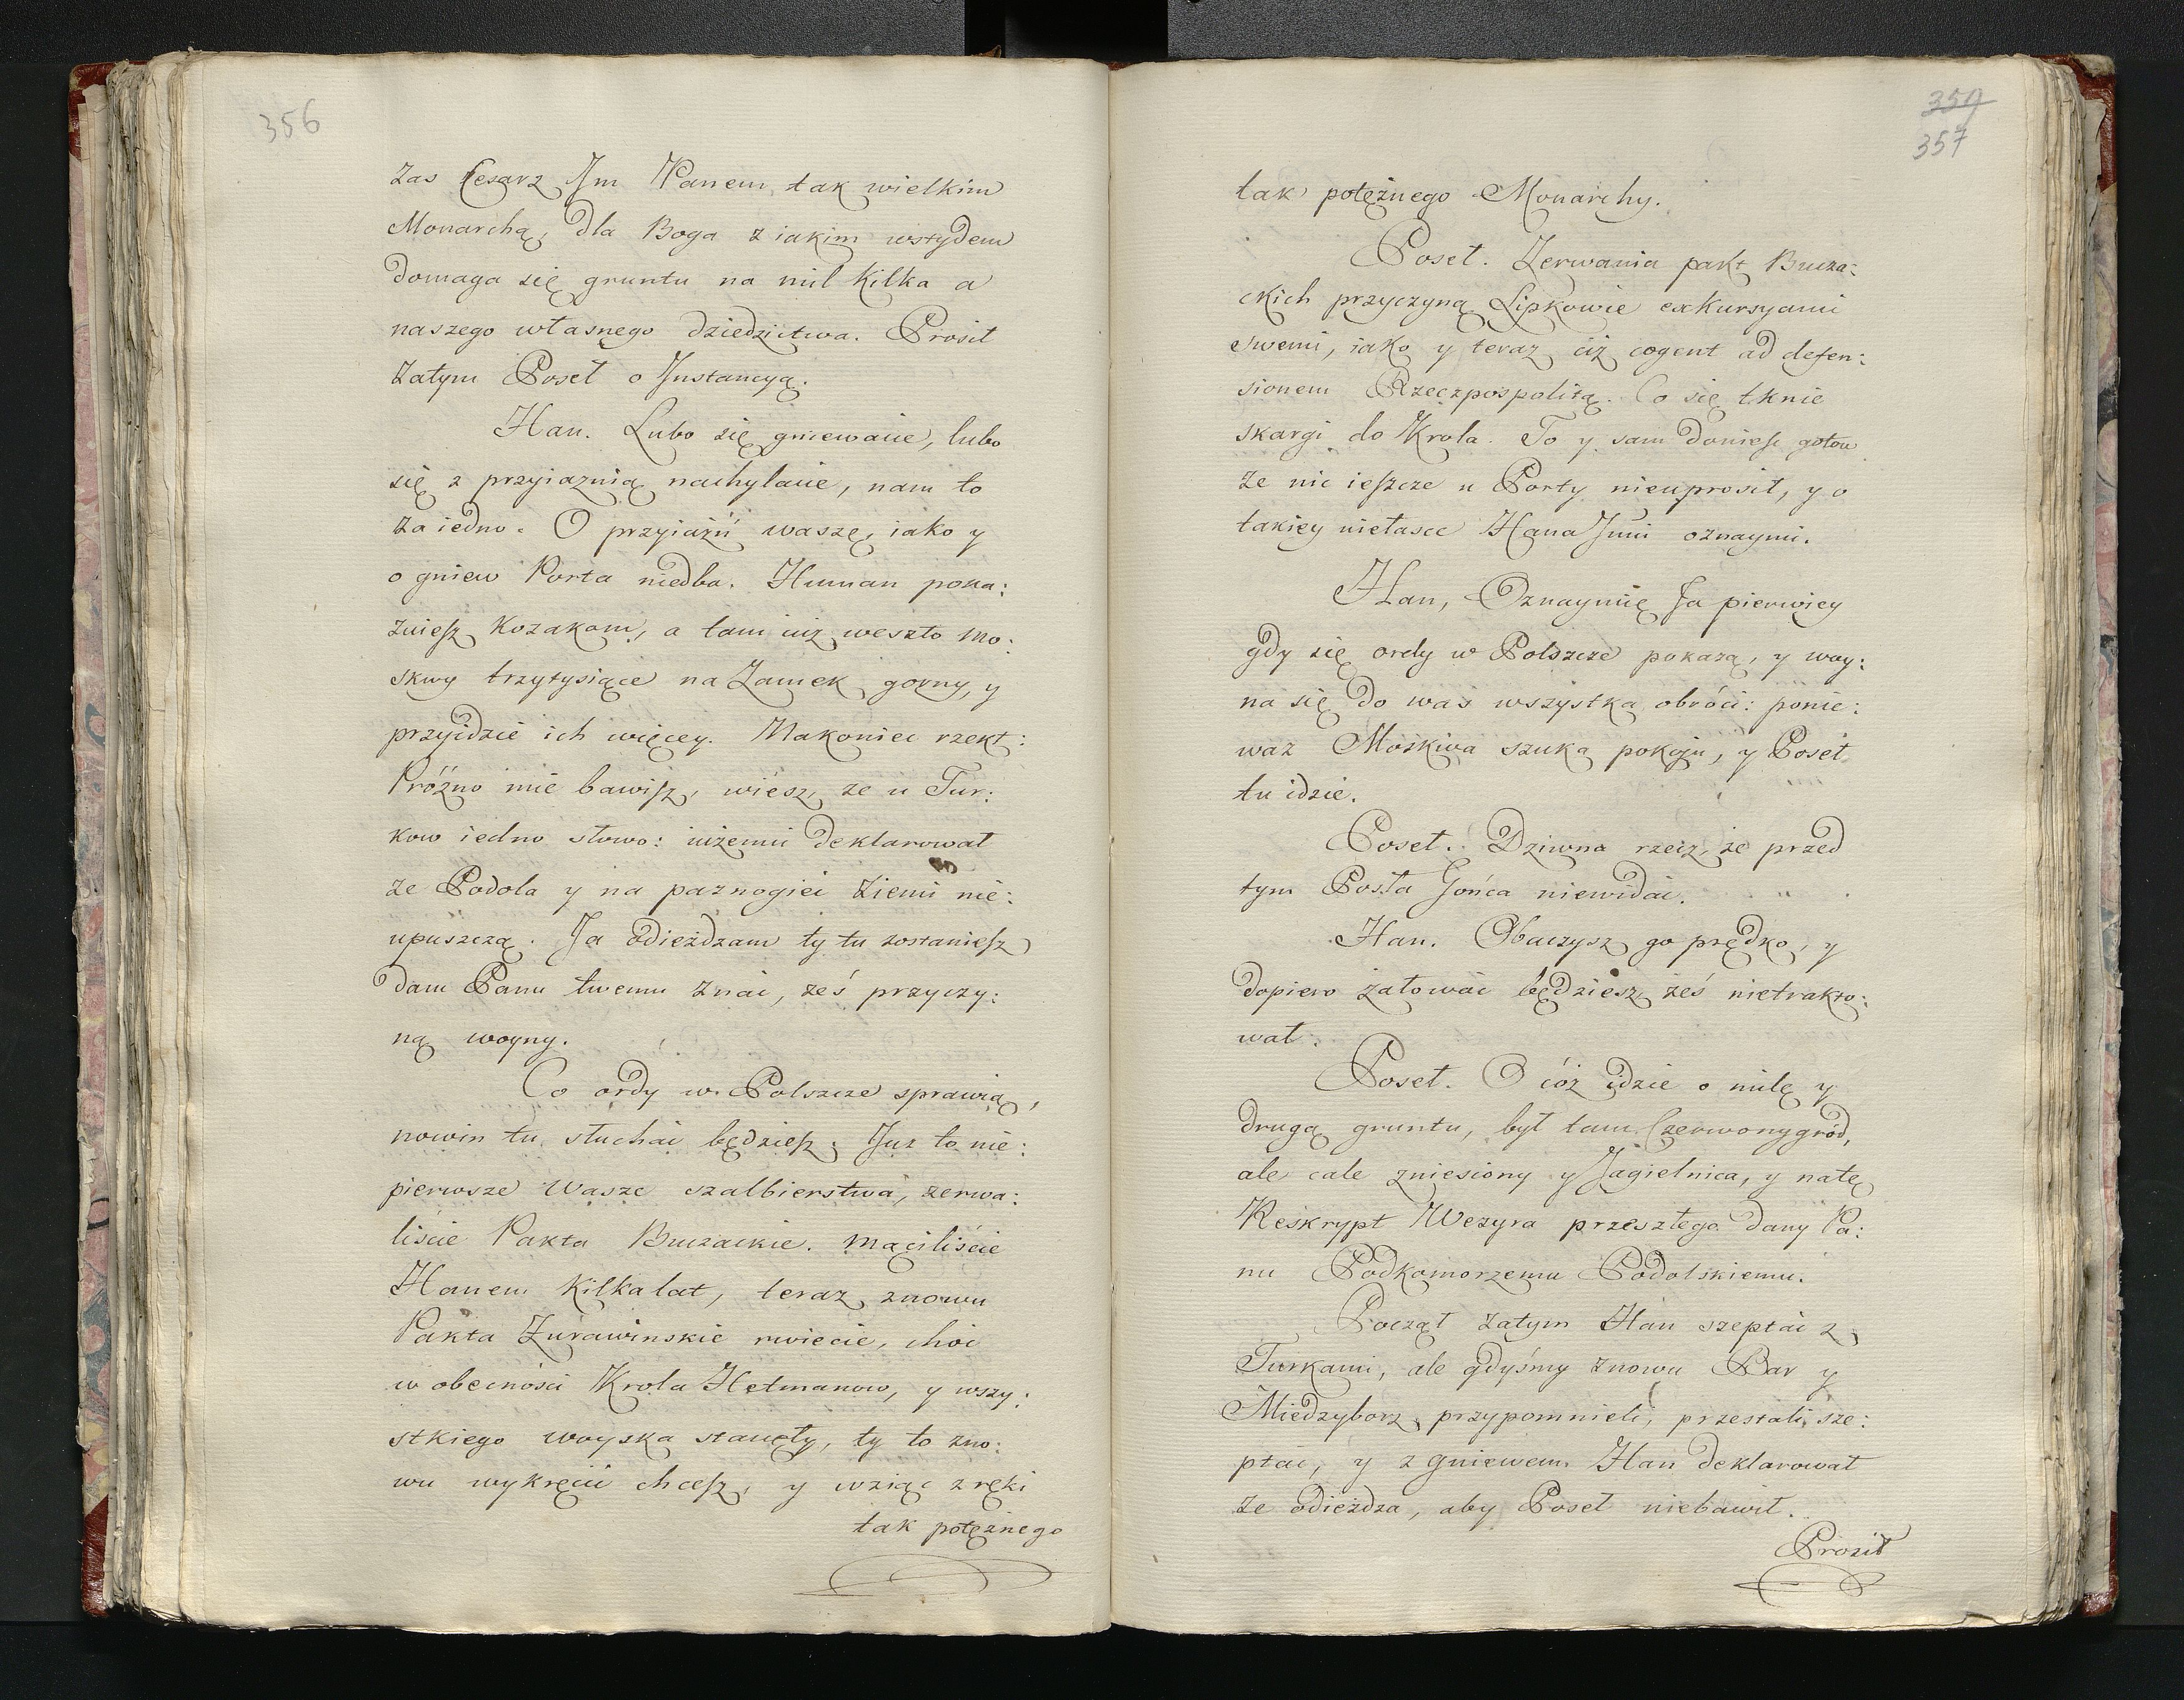 356
zas Cesarz Jm Panem tak wielkim
Monarchą, dla Boga z iakim wstydem
domaga się gruntu na mil kilka a
naszego własnego dziedzictwa. Prosił
zatym Poseł o Jnstancyą.
Han. Lubo się gniewacie, lubo
się z przyiaznią nachylacie, nam to
za iedno. O przyiaźń waszę, iako y
o gniew Porta niedba. Human poka:
zuiesz Kozakom, a tam iuż weszło Mo:
skwy trzytysiące na Zamek gorny, y
przyidzie ich więcey. Nakoniec rzekł:
Próżno mie bawisz, wiesz, ze u Tur:
kow iedno słowo: iużemci deklarował
ze Podola y na paznogieć ziemi nie:
upuszczą. Ja odieżdzam ty tu zostaniesz,
dam Panu twemu znać, żeś przyczy:
ną woyny.
Co ordy w Polszcze sprawią,
nowin tu słuchać będziesz. Juz to nie:
pierwsze Wasze szalbierstwa, zerwa:
liście Pakta Buczackie. Mąciliście
Hanem kilkalat, teraz znowu
Pakta Zurawinskie rwiecie, choć
w obecności Krola Hetmanow, y wszy:
stkiego woyska stanęły, ty to zno:
wu wykręcić chcesz, y wziąć z ręki
tak potężnego
359
357
tak potężnego Monarchy.
Poseł. Zerwania pakt Bucza:
ckich przyczyną Lipkowie exkursyami
swemi, iako y teraz ciż cogent ad defen:
sionem Rzeczpospolitą. Co się tknie
skargi do Krola. To y sam doniesc gotow
Ze nic ieszcze u Porty nieuprosił, y o
takiey niełasce Hana Jmci oznaymi.
Han, Oznaymię Ja pierwiey
gdy się ordy w Polszcze pokazą, y woy:
na się do was wszystka obróci: ponie:
waz Moskwa szuka pokoju, y Poseł
tu idzie.
Poseł. Dziwna rzecz, że przed
tym Posła Gońca niewidać.
Han. Obaczysz go prędko, y
dopiero żałować będziesz żeś nietrakto:
wał.
Poseł. O cóż idzie o milę y
drugą gruntu, był tam Czerwonygród,
ale cale zniesiony y Jagielnica, y natę
Reskrypt Wezyra przeszłego dany Pa:
nu Podkomorzemu Podolskiemu.
Począł zatym Han szeptać z
Turkami, ale gdyśmy znowu Bar y
Miedzyborz przypomnieli, przestali sze:
ptać, y z gniewem Han deklarował
ze odieżdza, aby Poseł niebawił.
Prosił